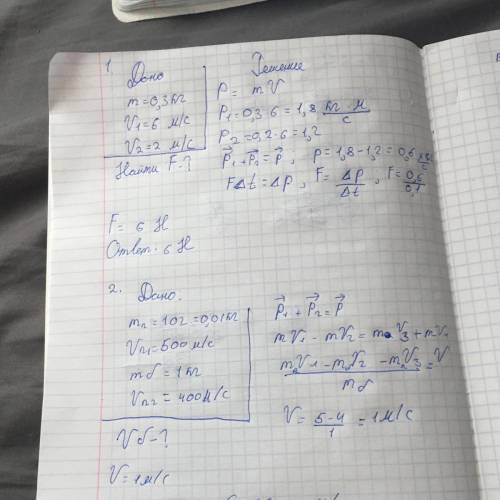 1.
Дано
m=0,3кг
V1=6 м/с
V2=2 м/с
Найти F-?
Решение
P= mV
P1=0,3·6=1,8 кг·м/с
P2=0,2·6=1,2
P⃗1+P⃗2=P⃗, p=1,8-1,2=0,6 кг·м/с
F△t=△p, F=△p/△t, F=0,6/0,1
F= 6 H
Ответ. 6 H
2. Дано.
mп=10г=0,01кг
Vп1=500м/с
mб=1кг
Vп2=400м/с
Vб-?
V=1м/с
P⃗1+P⃗2=P⃗
mV1-mV2=mпV3+mV
mпV1-mпV2-mпV3/mб=V
V=5-4/1=1м/с